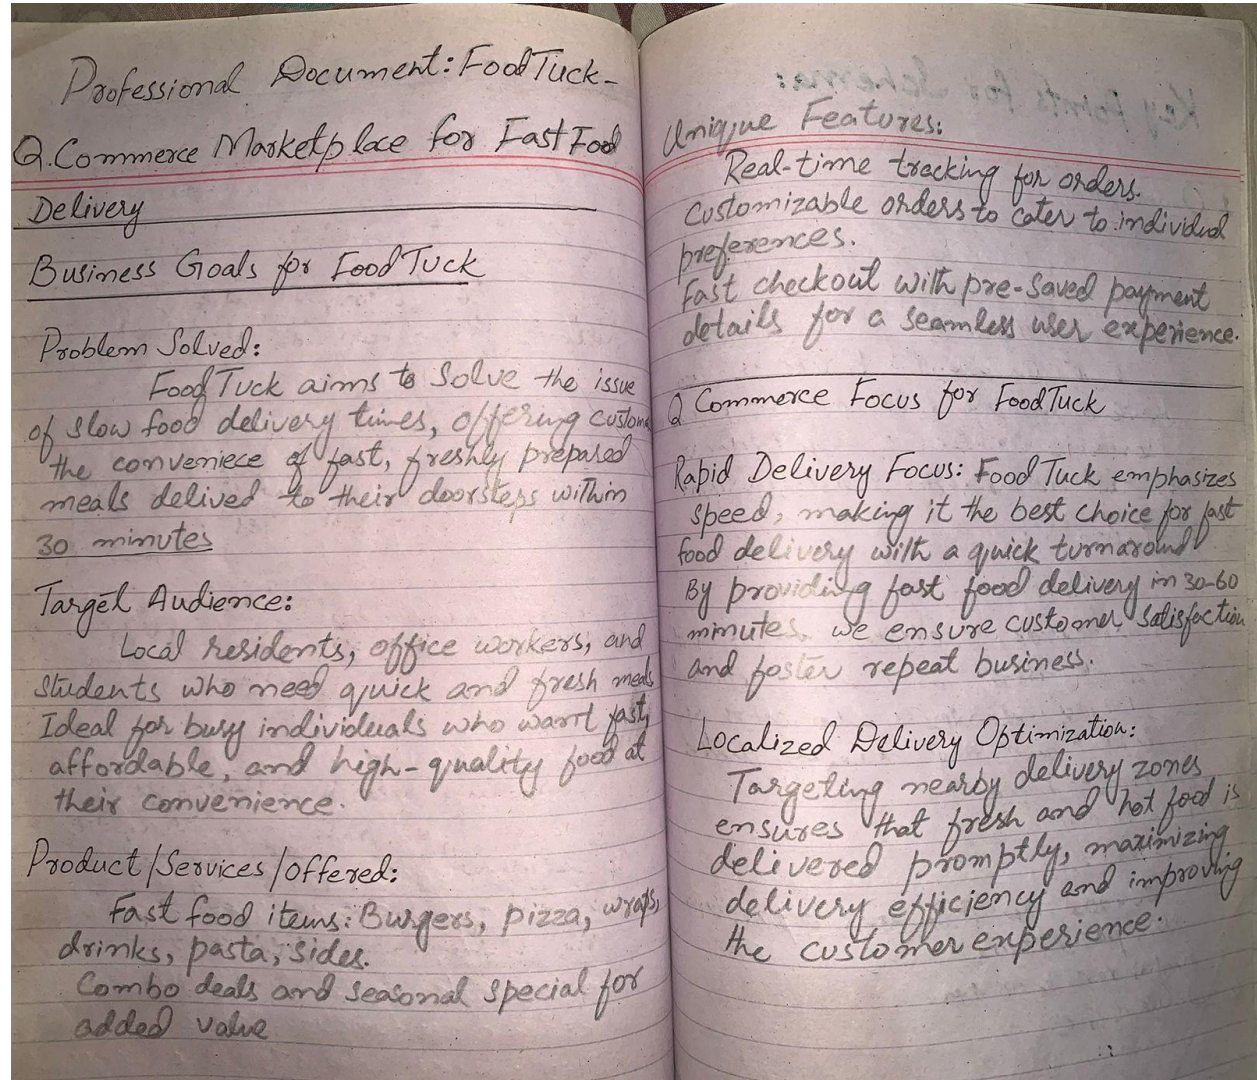 Professional Document: FoodTuck-
Q.Commerce Marketplace for Fast Food
Delivery
Business Goals for FoodTuck
Problem Solved:
FoodTuck aims to Solve the issue
of slow food delivery times, offering custom
the conveniece of fast, freshly prepared
meals delived to their doorsteps within
30 minutes
Target Audience:
Local residents, office workers, and
students who need quick and fresh meals
Ideal for busy individuals who want fast,
affordable, and high-quality food at
their convenience.
Product/Services/Offered:
Fast food items: Burgers, pizza, wraps,
drinks, pasta, sides.
Combo deals and seasonal special for
added value
Unique Features:
Real-time tracking for orders.
Customizable orders to cater to individual
preferences.
Fast checkout with pre-saved payment
details for a seamless user experience.
Q Commerce Focus for FoodTuck
Rapid Delivery Focus: FoodTuck emphasizes
speed, making it the best choice for fast
food delivery with a quick turnaround
By providing fast food delivery in 30-60
minutes, we ensure customer satisfaction
and foster repeat business.
Localized Delivery Optimization:
Targeting nearby delivery zones
ensures that fresh and hot food is
delivered promptly, maximizing
delivery efficiency and improving
the customer experience.